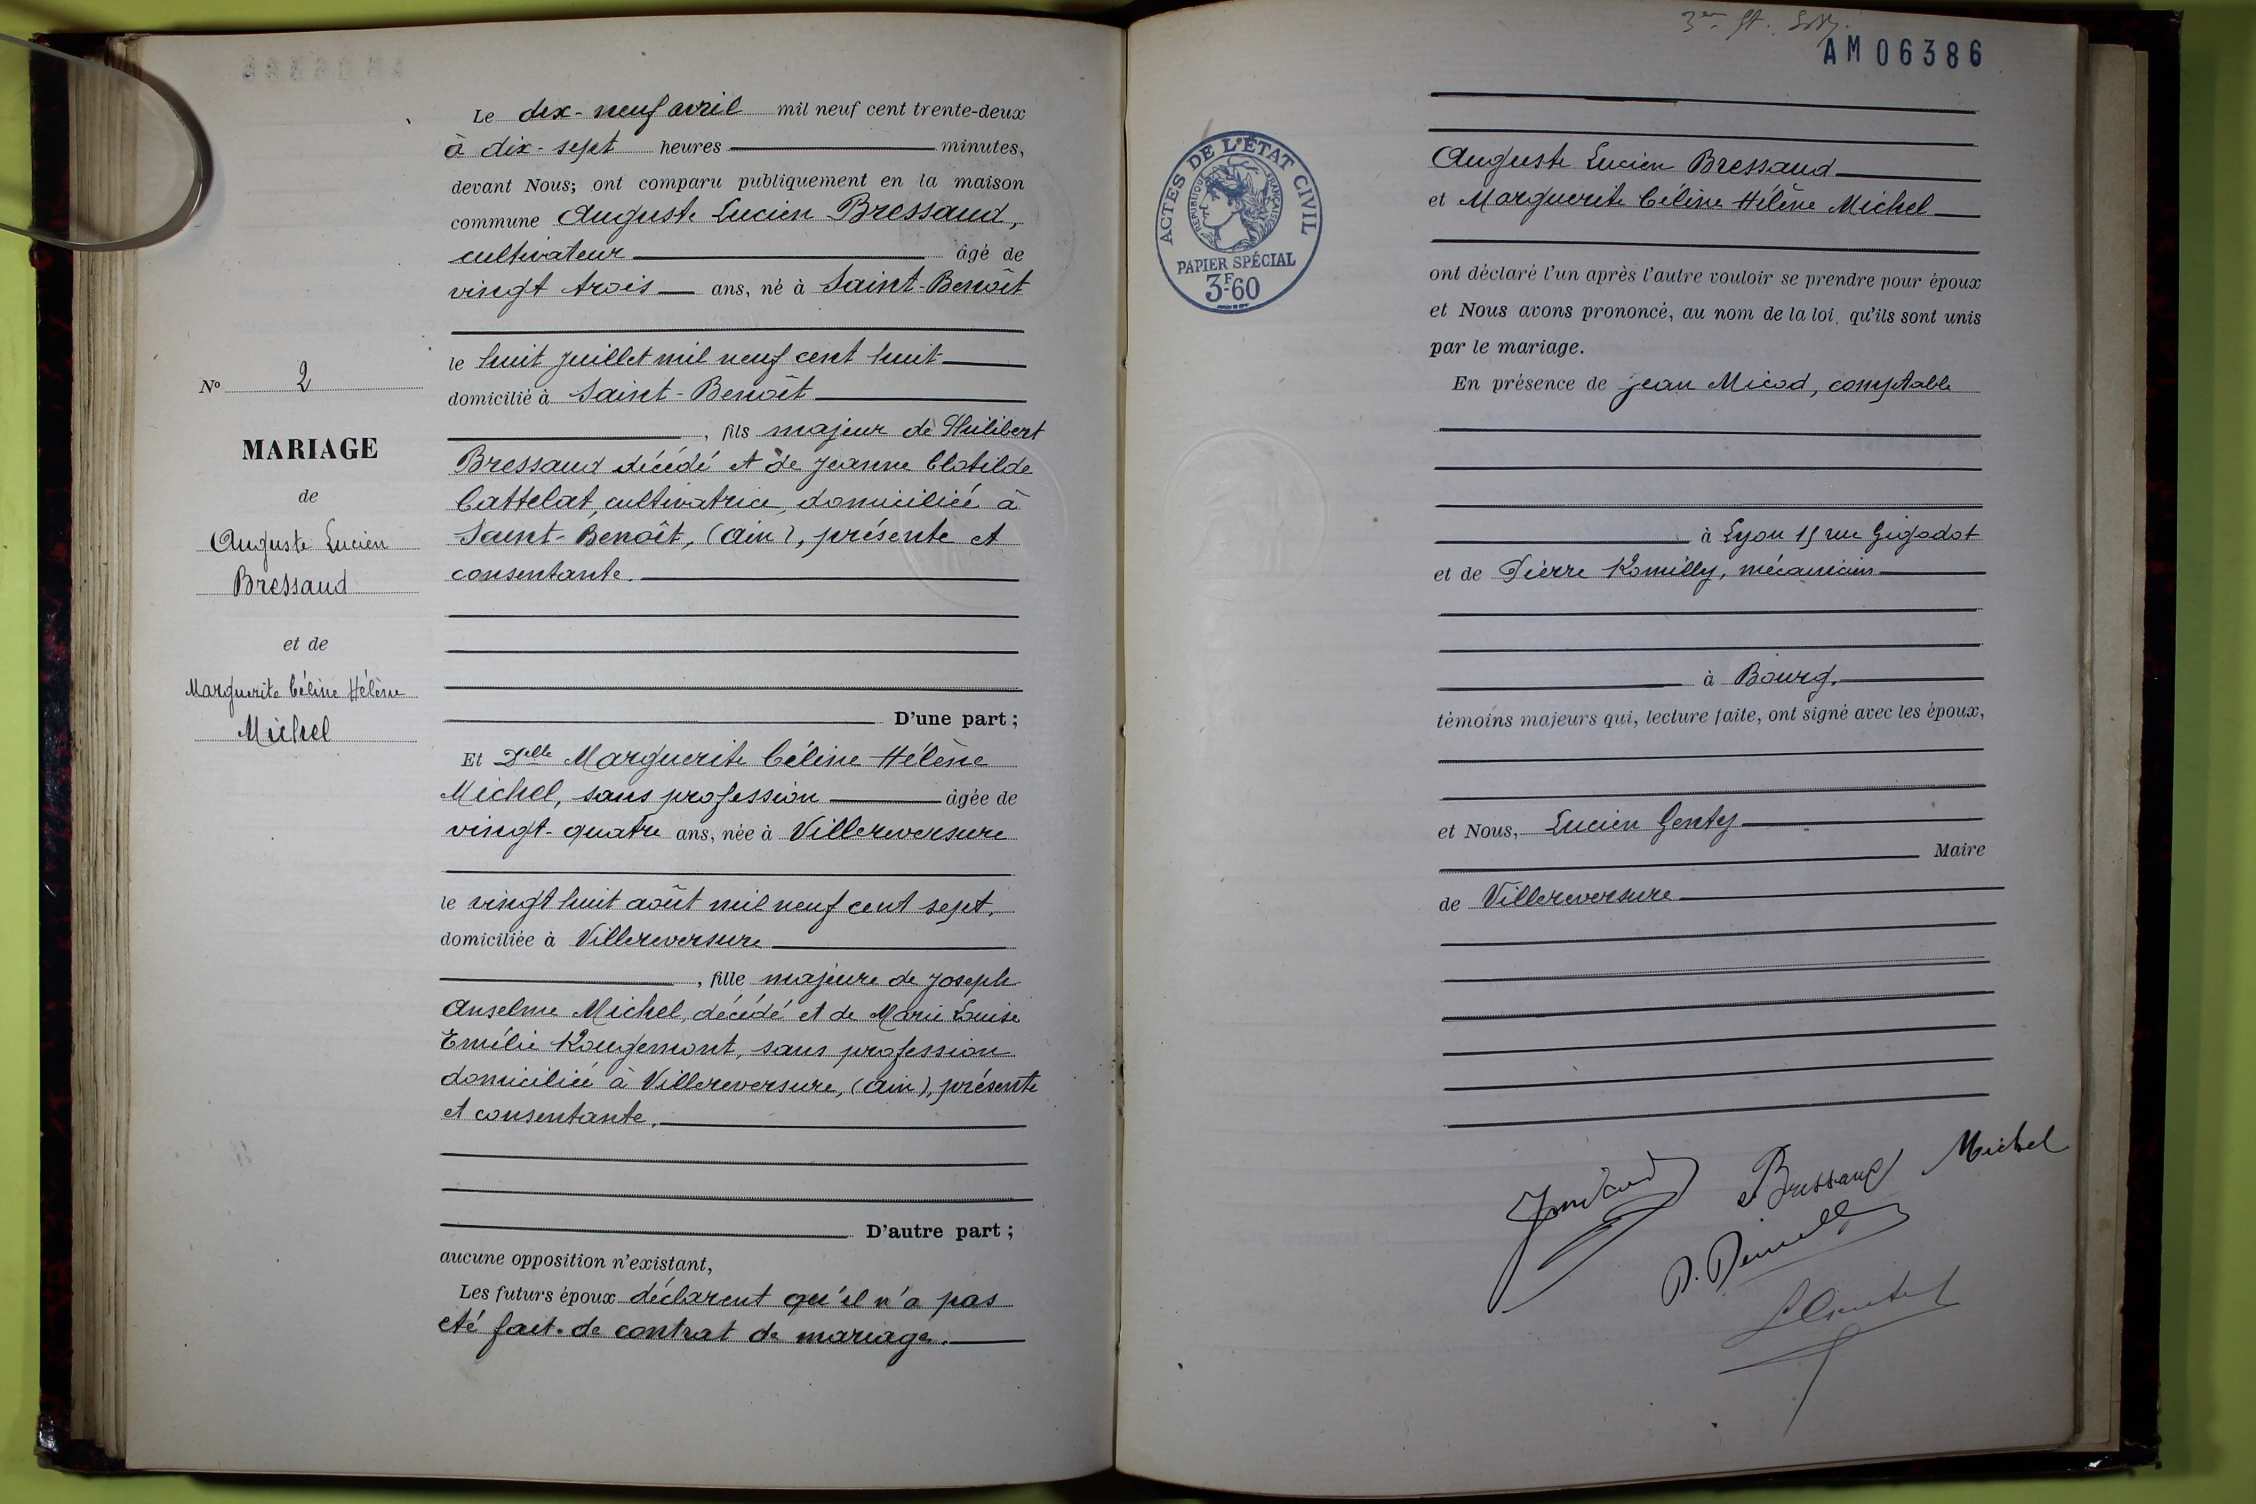 Le dix-neuf avril mil neuf cent trente-deux
à dix-sept heures minutes,
devant Nous; ont comparu publiquement en la maison
commune Auguste Lucien Bressaud,
cultivateur âgé de
vingt trois ans, né à Saint-Benoît
le huit juillet mil neuf cent huit
domicilié à Saint-Benoît
, fils majeur de Philibert
Bressaud décédé et de Jeanne Clotilde
Cattelat, cultivatrice, domiciliée à
Saint-Benoît, (Ain), présente et
consentante.
D'une part ;
Et Delle Marguerite Céline Hélène
Michel, sans profession âgée de
vingt-quatre ans, née à Villereversure
le vingt huit août mil neuf cent sept,
domiciliée à Villereversure
, fille majeure de Joseph
Anselme Michel, décédé et de Marie Louise
Emélie Rougemont, sans profession
domiciliée à Villereversure, (Ain), présente
et consentante.
D'autre part ;
aucune opposition n'existant,
Les futurs époux déclarent qu'il n'a pas
été fait de contrat de mariage.
No 2
MARIAGE
de
Auguste Lucien
Bressaud
et de
Marguerite Céline Hélène
Michel
AM06386
ACTES DE L'ÉTAT CIVIL
RÉPUBLIQUE FRANÇAISE
PAPIER SPÉCIAL
3F-60
Auguste Lucien Bressaud
et Marguerite Céline Hélène Michel
ont déclaré l'un après l'autre vouloir se prendre pour époux
et Nous avons prononcé, au nom de la loi, qu'ils sont unis
par le mariage.
En présence de Jean Micod, comptable
à Lyon 15 rue Gigodot
et de Pierre Romilly, mécanicien
à Bourg.
témoins majeurs qui, lecture faite, ont signé avec les époux,
et Nous, Lucien Genty
Maire
de Villereversure
Bressaud Michel